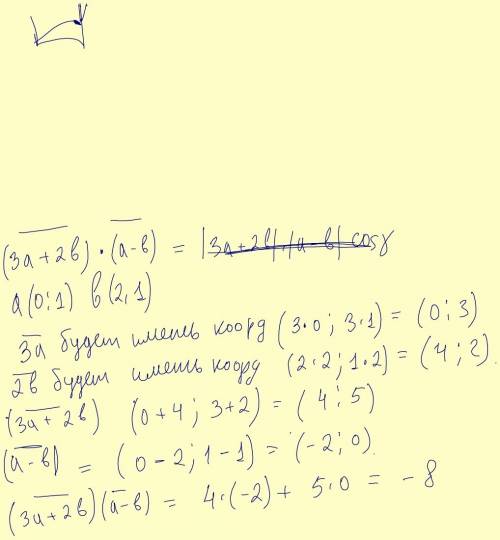 (3a+2b)·(a-b) = |3a+2b|·|a-b| cosγ
a(0;1) b(2,1)
3a будет иметь коорд (3·0; 3·1) = (0;3)
2b будет иметь коорд (2·2; 1·2) = (4;2).
(3a+2b) (0+4; 3+2) = (4;5)
(a-b) = (0-2; 1-1) = (-2;0).
(3a+2b)(a-b) = 4·(-2)+ 5·0 = -8